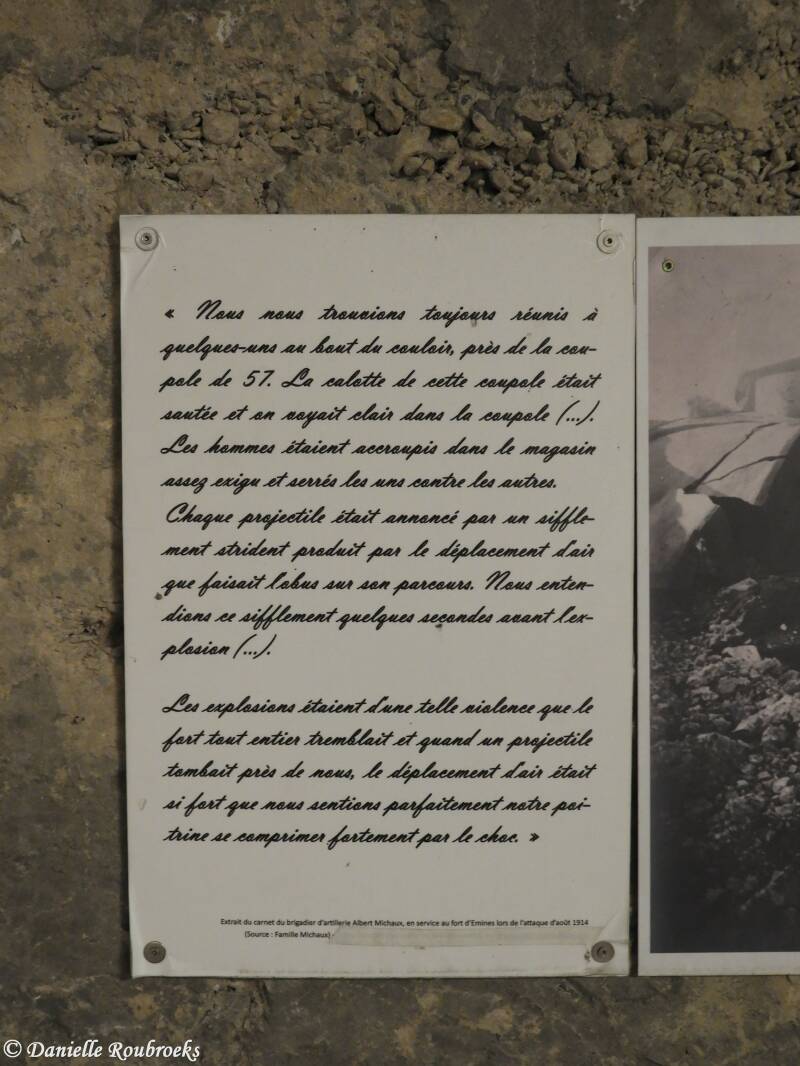 « Nous nous trouvions toujours réunis à
quelques-uns au bout du couloir, près de la cou-
pole de 57. La calotte de cette coupole était
sautée et on voyait clair dans la coupole (...).
Les hommes étaient accroupis dans le magasin
assez exigu et serrés les uns contre les autres.
Chaque projectile était annoncé par un siffle-
ment strident produit par le déplacement d'air
que faisait l'obus sur son parcours. Nous enten-
dions ce sifflement quelques secondes avant l'ex-
plosion (...).
Les explosions étaient d'une telle violence que le
fort tout entier tremblait et quand un projectile
tombait près de nous, le déplacement d'air était
si fort que nous sentions parfaitement notre poi-
trine se comprimer fortement par le choc. »
Extrait du carnet du brigadier d'artillerie Albert Michaux, en service au fort d'Emines lors de l'attaque d'août 1914
(Source : Famille Michaux) -
© Danielle Roubroeks